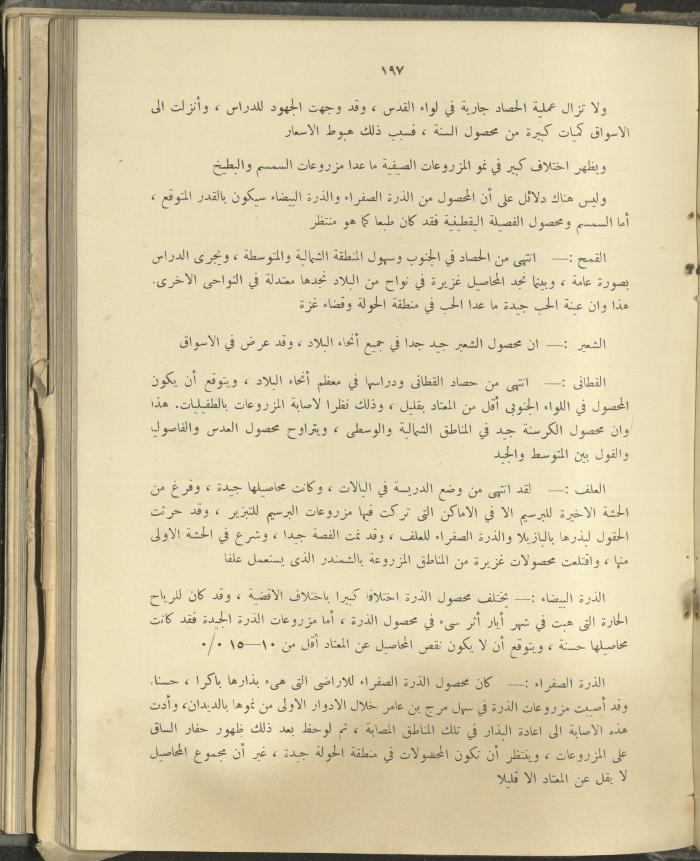 ١٩٧
ولا تزال عملية الحصاد جارية في لواء القدس ، وقد وجهت الجهود للدراس ، وأنزلت الى
الاسواق كميات كبيرة من محصول السنة ، فسبب ذلك هبوط الاسعار
ويظهر اختلاف كبير في نمو المزروعات الصيفية ما عدا مزروعات السمسم والبطيخ
وليس هناك دلائل على أن المحصول من الذرة الصفراء والذرة البيضاء سيكون بالقدر المتوقع ،
أما السمسم ومحصول الفصيلة اليقطينية فقد كان طبعا كما هو منتظر
القمح :— انتهى من الحصاد في الجنوب وسهول المنطقة الشمالية والمتوسطة ، ويجرى الدراس
بصورة عامة ، وبينما نجد المحاصيل غزيرة في نواح من البلاد نجدها معتدلة في النواحى الاخرى.
هذا وان عينة الحب جيدة ما عدا الحب في منطقة الحولة وقضاء غزة
الشعير :— ان محصول الشعير جيد جدا في جميع أنحاء البلاد ، وقد عرض في الاسواق
القطانى :— انتهى من حصاد القطانى ودراسها في معظم أنحاء البلاد ، ويتوقع أن يكون
المحصول في اللواء الجنوبى أقل من المعتاد بقليل ، وذلك نظرا لاصابة المزروعات بالطفيليات. هذا
وان محصول الكرسنة جيد في المناطق الشمالية والوسطى ، ويتراوح محصول العدس والفاصوليا
والفول بين المتوسط والجيد
العلف :— لقد انتهى من وضع الدريسة في البالات ، وكانت محاصيلها جيدة ، وفرغ من
الحشة الاخيرة للبرسيم الا في الاماكن التى تركت فيها مزروعات البرسيم للتبزير ، وقد حرثت
الحقول لبذرها بالبازيلا والذرة الصفراء للعلف ، وقد نمت الفصة جيدا ، وشرع في الحشة الاولى
منها ، واقتلعت محصولات غزيرة من المناطق المزروعة بالشمندر الذى يستعمل علفا
الذرة البيضاء :— يختلف محصول الذرة اختلافا كبيرا باختلاف الاقضية ، وقد كان للرياح
الحارة التى هبت في شهر أيار أثر سىء في محصول الذرة ، أما مزروعات الذرة الجيدة فقد كانت
محاصيلها حسنة ، ويتوقع أن لا يكون نقص المحاصيل عن المعتاد أقل من ١٠—١٥ ٠/٠
الذرة الصفراء :— كان محصول الذرة الصفراء للاراضى التى هىء بذارها باكرا ، حسنا.
وقد أصيبت مزروعات الذرة في سهل مرج بن عامر خلال الادوار الاولى من نموها بالديدان، وأدت
هذه الاصابة الى اعادة البذار في تلك المناطق المصابة ، ثم لوحظ بعد ذلك ظهور حفار الساق
على المزروعات ، وينتظر أن تكون المحصولات في منطقة الحولة جيدة ، غير أن مجموع المحاصيل
لا يقل عن المعتاد الا قليلا